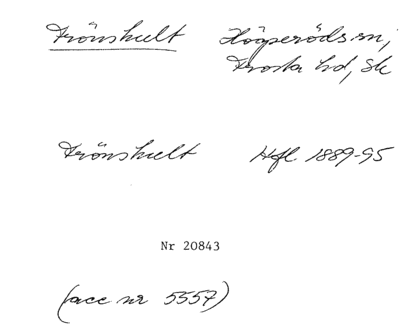 Frönshult Högseröds sn,
Frosta hd, Sk
Frönshult Hfl 1889-95
Nr 20843
(acc nr 5557)